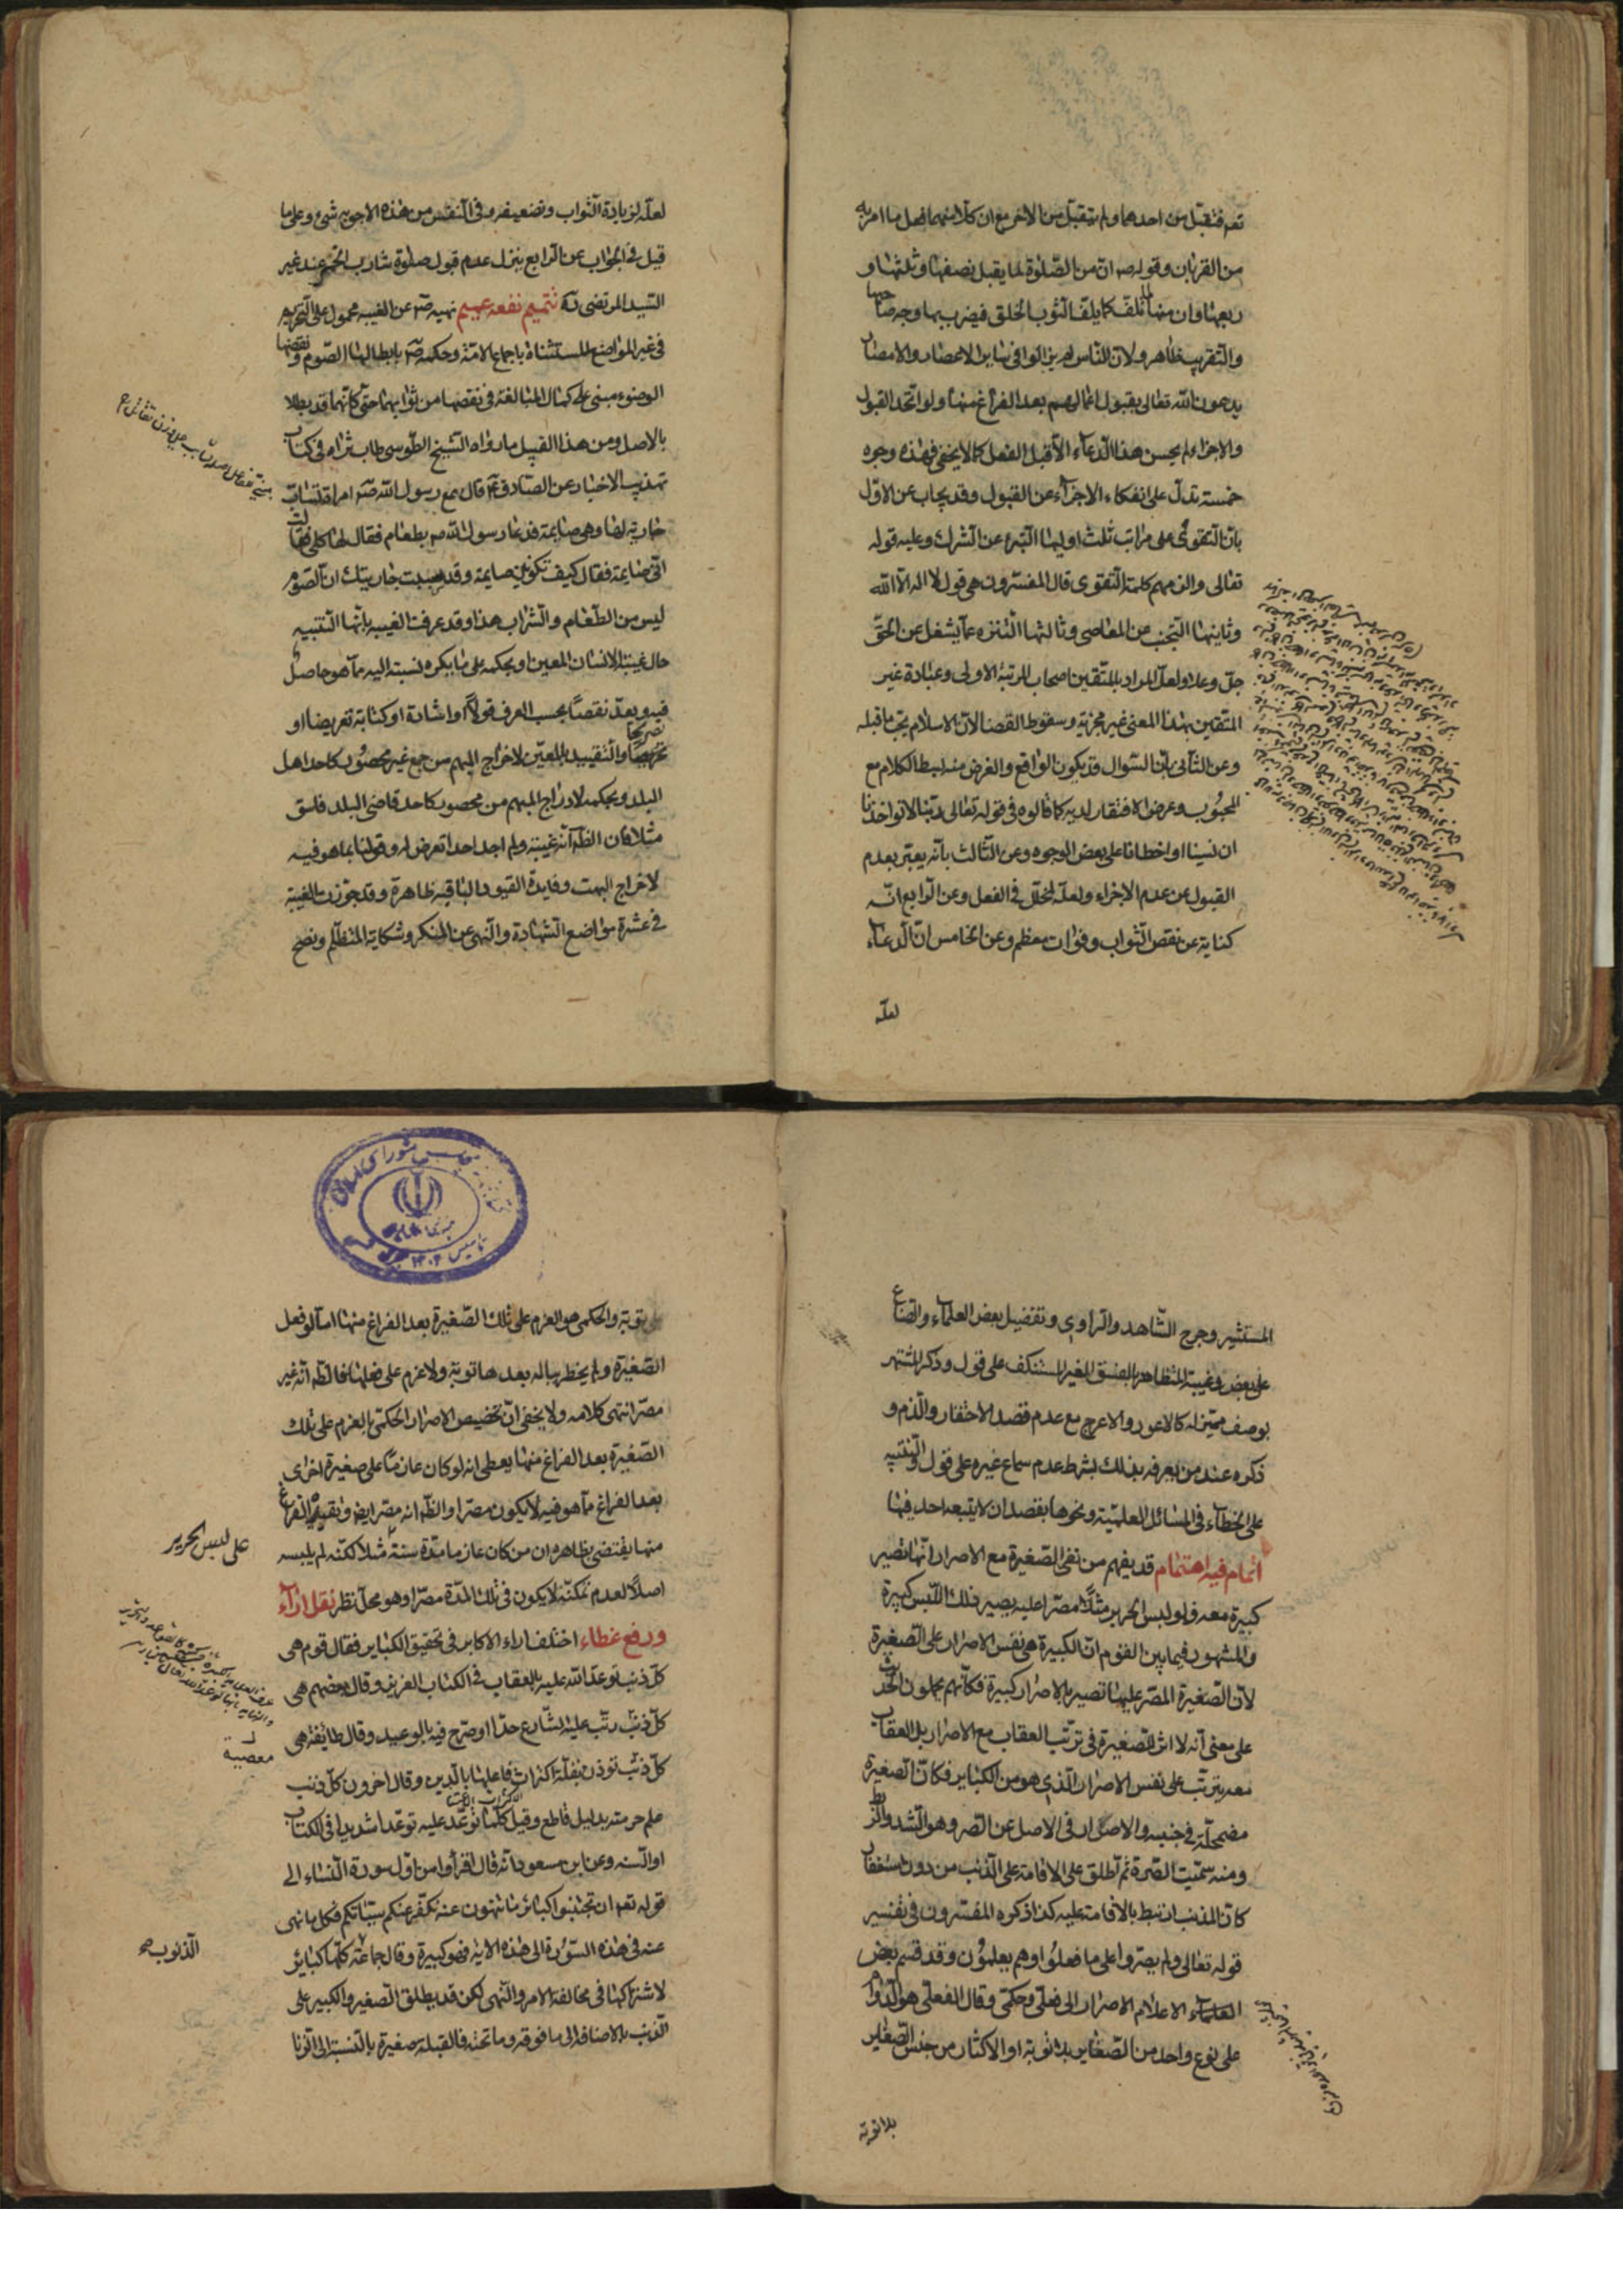 تعم فتقبل من احدهما ولم يتقبل من الاخر مع ان كلا منهما فعل ما امر به
من القربان وقوله صه ان من الصلوة لما يقبل نصفها وثلثها و
ربعها وان منها لما تلف كما يلف الثوب الخلق فيضرب بها وجه صاحبها
والتقريب ظاهر ولان الناس لم يزالوا في ساير الاعصار والامصار
يدعون الله تعالى بقبول اعمالهم بعد الفراغ منها ولو اتحد القبول
والاجزاء لم يحسن هذا الدعاء الا قبل الفعل كما لا يخفى فهذه وجوه
خمسة تدل على انفكاك الاجزاء عن القبول وقد يجاب عن الاول
بان التقوى على مراتب ثلث اوليها التبره عن الشرك وعليه قوله
تعالى والزمهم كلمة التقوى قال المفسرون هي قول لا اله الا الله
وثانيها التجنب من المعاصي وثالثها التنزه عما يشغل عن الحق
جل وعلا ولعل المراد بالمتقين اصحاب المرتبة الاولى وعبادة غير
المتقين بهذا المعنى غير مجزية وسقوط القضا لان الاسلام يجب ما قبله
وعن الثاني بان السؤال قد يكون الواقع والغرض منه بسط الكلام مع
المحبوب وعرض الافتقار لديه كما قالوه في قوله تعالى ربنا لا تواخذنا
ان نسينا او اخطانا على بعض الوجوه وعن الثالث بانه يعبر بعدم
القبول عن عدم الاجزاء ولعله لخلل في الفعل وعن الرابع انه
كناية عن نقص الثواب وفوات معظمه وعن الخامس ان الدعاء
لعله
لعله لزيادة الثواب وتضعيفه وفي النفس من هذه الاجوبه شئ وعلى ما
قيل في الجواب عن الرابع ينزل عدم قبول صلوة شارب الخمر عند غير
السيد المرتضى ره تتميم نفعه عميم نهيه صه عن الغيبه محمول على التحريم
في غير المواضع المستثناة باجماع الامة وحكمه صه بابطالها الصوم ونقضها
الوضوء مبنى على كمال المبالغة في نقصها من ثوابهما حتى كانهما قد بطلا
بالاصل ومن هذا القبيل ما رواه الشيخ الطوسي طاب ثراه في كتاب
تهذيب الاخبار عن الصادق ع قال سمع رسول الله صه امراة تساب
جارية لها وهي صايمة فدعا رسول الله صه بطعام فقال لها كلي فقالت
اني صايمة فقال كيف تكونين صايمة وقد سببت جاريتك ان الصوم
ليس من الطعام والشراب هذا وقد عرفت الغيبه بانها التنبيه
حال غيبة الانسان المعين او بحكمه على ما يكره نسبته اليه مما هو حاصل
فيه ويعد نقصا بحسب العرف قولا او اشارة او كناية تعريضا او
تصريحا والتقييد بالمعين لاخراج المبهم من جمع غير محصور كاحد اهل
البلد وبحكمه لادراج المبهم من محصور كاحد قاضي البلد فاسق
مثلا فان الظ انه غيبة ولم اجد احدا تعرض له وقولنا بما هو فيه
لاخراج البهت وفايدة القيود الباقيه ظاهرة وقد جوزت الغيبة
في عشرة مواضع الشهادة والنهي عن المنكر وشكاية المتظلم ونصح
المستشير وجرح الشاهد والراوي وتفضيل بعض العلماء والصناع
على بعض وغيبة المتظاهر بالفسق الغير المستنكف على قول وذكر المشتهر
بوصف مميز له كالاعور والاعرج مع عدم قصد الاحتقار والذم و
ذكره عند من يعرفه بذلك بشرط عدم سماع غيره على قول والتنبيه
على الخطاء في المسائل العلمية ونحوها بقصد ان لا يتبعه احد فيها
اتمام فيه اهتمام قد يفهم من نفي الصغيرة مع الاصرار انها تصير
كبيرة معه فلو لبس الحرير مثلا مصرا عليه يصير ذلك اللبس كبيرة
والمشهور فيما بين القوم ان الكبيرة هي نفس الاصرار على الصغيرة
لان الصغيرة المصر عليها تصير بالاصرار كبيرة فكانهم يحملون الحديث
على معنى انه لا اثر للصغيرة في ترتب العقاب مع الاصرار بل العقاب
معه يترتب على نفس الاصرار الذي هو من الكباير فكان الصغيرة
مضمحلة في جنبه والاصرار في الاصل عن الصر وهو الشد والربط
ومنه سميت الصرة ثم اطلق على الاقامة على الذنب من دون استغفار
كان المذنب ارتبط بالاقامة عليه كذا ذكره المفسرون في تفسير
قوله تعالى ولم يصروا على ما فعلوا وهم يعلمون وقد قسم بعض
العلماء الاعلام الاصرار الى فعلي وحكمي وقال الفعلي هو الدوام
على نوع واحد من الصغاير بلا توبة او الاكثار من جنس الصغاير
بلا توبة
بلا توبة والحكمي هو العزم على تلك الصغيرة بعد الفراغ منها اما لو فعل
الصغيرة ولم يخطر بباله بعدها توبة ولا عزم على فعلها فالظ انه غير
مصر انتهى كلامه ولا يخفى ان تخصيص الاصرار الحكمي بالعزم على تلك
الصغيرة بعد الفراغ منها يعطي انه لو كان عازما على صغيرة اخرى
بعد الفراغ مما هو فيه لا يكون مصرا والظ انه مصر ايض وتقييده بالفراغ
منها يقتضي بظاهره ان من كان عازما مدة سنة مثلا لكنه لم يلبسه
على لبس الحرير
اصلا لعدم تمكنه لا يكون في تلك المدة مصرا وهو محل نظر نقل اراء
ورفع غطاء اختلف اراء الاكابر في تحقيق الكباير فقال قوم هي
كل ذنب توعد الله عليه بالعقاب في الكتاب العزيز وقال بعضهم هي
كل ذنب رتب عليه الشارع حدا او صرح فيه بالوعيد وقال طايفة هي
معصية
كل ذنب تؤذن بقلة اكتراث فاعلها بالدين وقال اخرون كل ذنب
علم حرمته بدليل قاطع وقيل كلما توعد عليه توعدا شديدا في الكتاب
او السنه وعن ابن مسعود انه قال اقرأوا من اول سورة النساء الى
قوله تعم ان تجتنبوا كبائر ما تنهون عنه نكفر عنكم سيئاتكم فكل ما نهى
عنه في هذه السورة الى هذه الاية فهو كبيرة وقال جماعة كلها كبائر
الذنوب صح
لاشتراكها في مخالفة الامر والنهي لكن قد يطلق الصغير والكبير على
الذنب بالاضافة الى ما فوقه وما تحته فالقبلة صغيرة بالنسبة الى الزنا